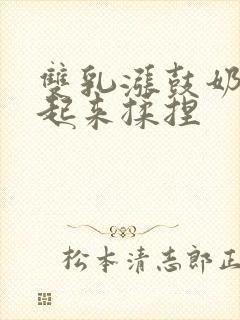 雙乳漲鼓奶
起来揉捏
松本清志郎正